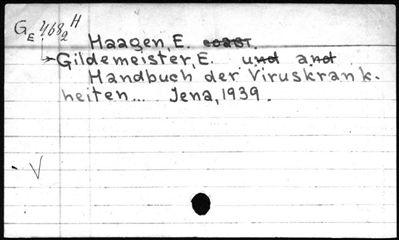 GE 4682 H
Haagen, E. coast.
Gildemeister, E. und and
Handbuch der Viruskrank.
heiten... Jena, 1939.
V